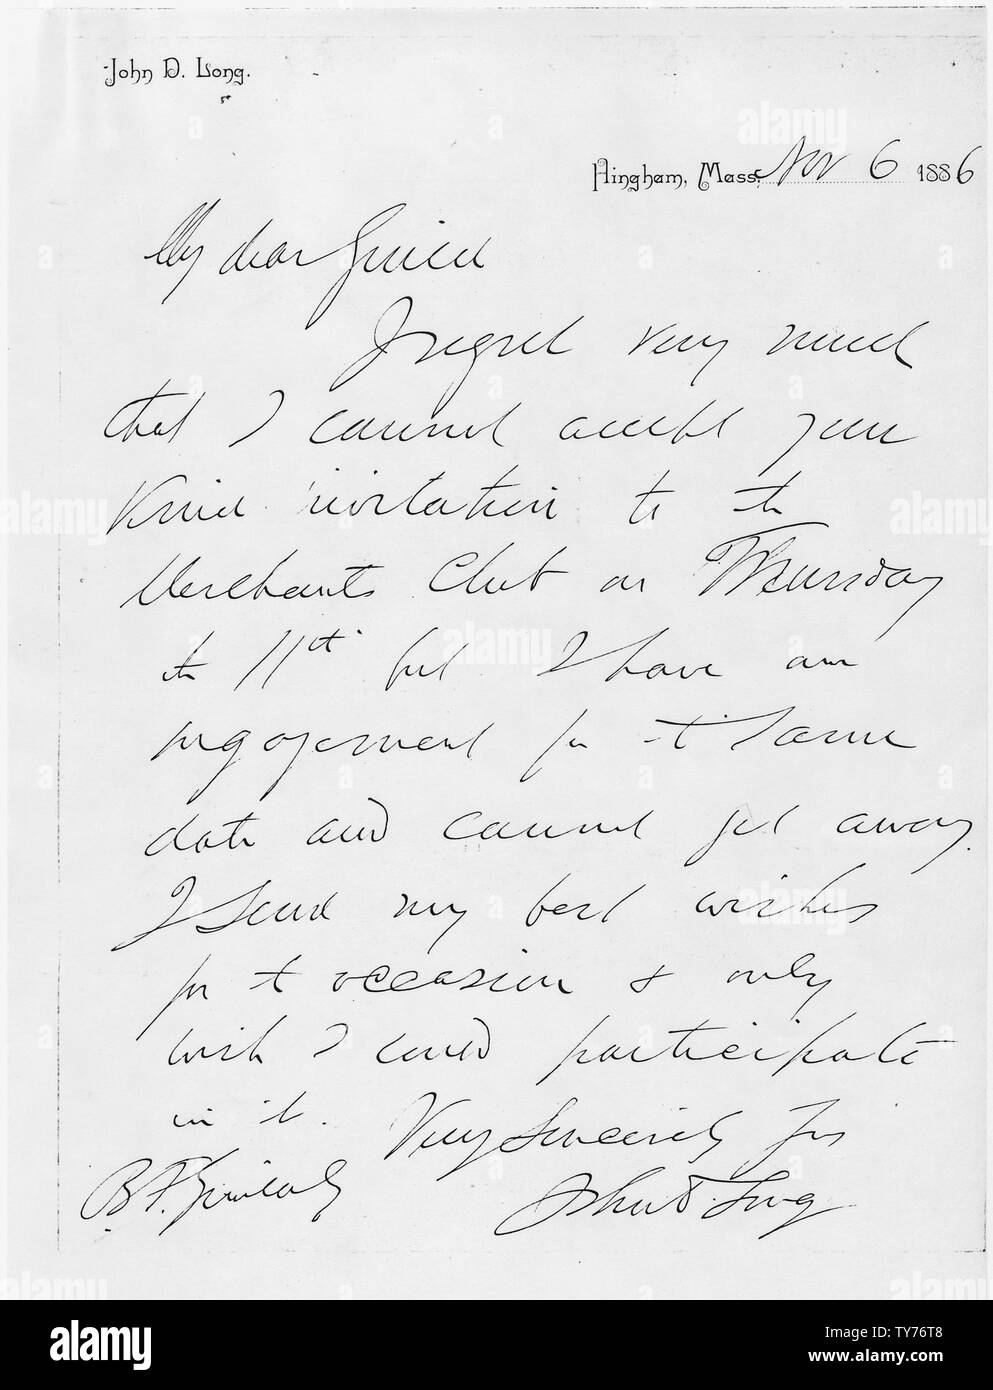 John D. Long.
Hingham, Mass. Nov 6 1886
My dear Guild
I regret very much
that I cannot accept your
kind invitation to the
Merchants Club on Thursday
the 11th but I have an
engagement for t same
date and cannot get away.
I send my best wishes
for t occasion & only
wish I could participate
in it.
Very Sincerely Yrs
John D. Long
B. F.
alamy
Image ID: TY76T8
www.alamy.com